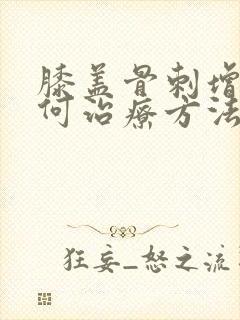 膝盖骨刺增
何治疗方法
狂妄_怒之流